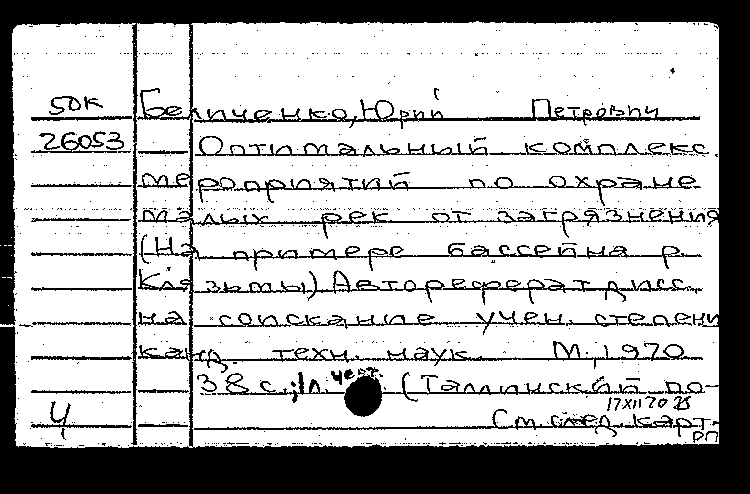 5DK Беличенко, Юрий Петрович
26053 Оптимальный комплекс
мероприятий по охране
малых рек от загрязнения
(На примере бассейна р.
Клязьмы) Автореферат дисс.
на соискание учен. степени
канд. техн. наук. М., 1970
38 с.; 1л. черт. (Таллинский по-
17 XII 70
Ч См. след. карт.
РП